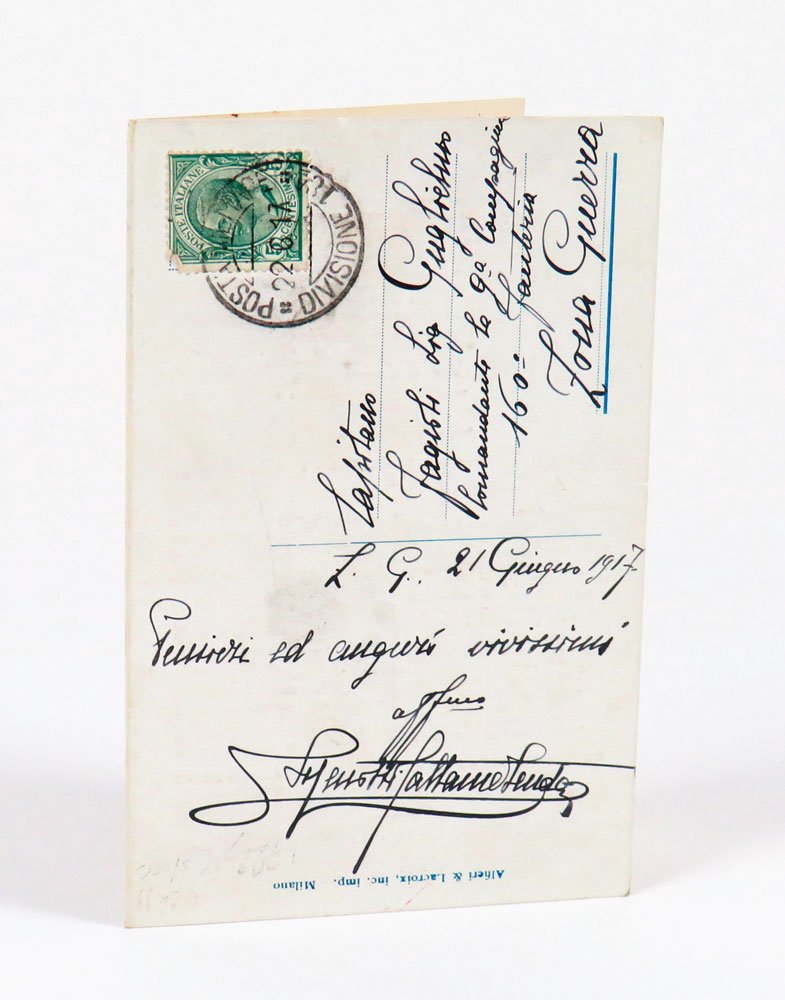 POSTE ITALIANE
CENTES. 5
POSTA MILITARE
22.6.17
DIVISIONE
Capitano
Fagioli Sig Guglielmo
Comandante la 9a Compagnia
160° Fanteria
Zona Guerra
Z. G. 21 Giugno 1917
Pensieri ed auguri vivissimi
affmo
Alfieri & Lacroix, inc. imp. Milano